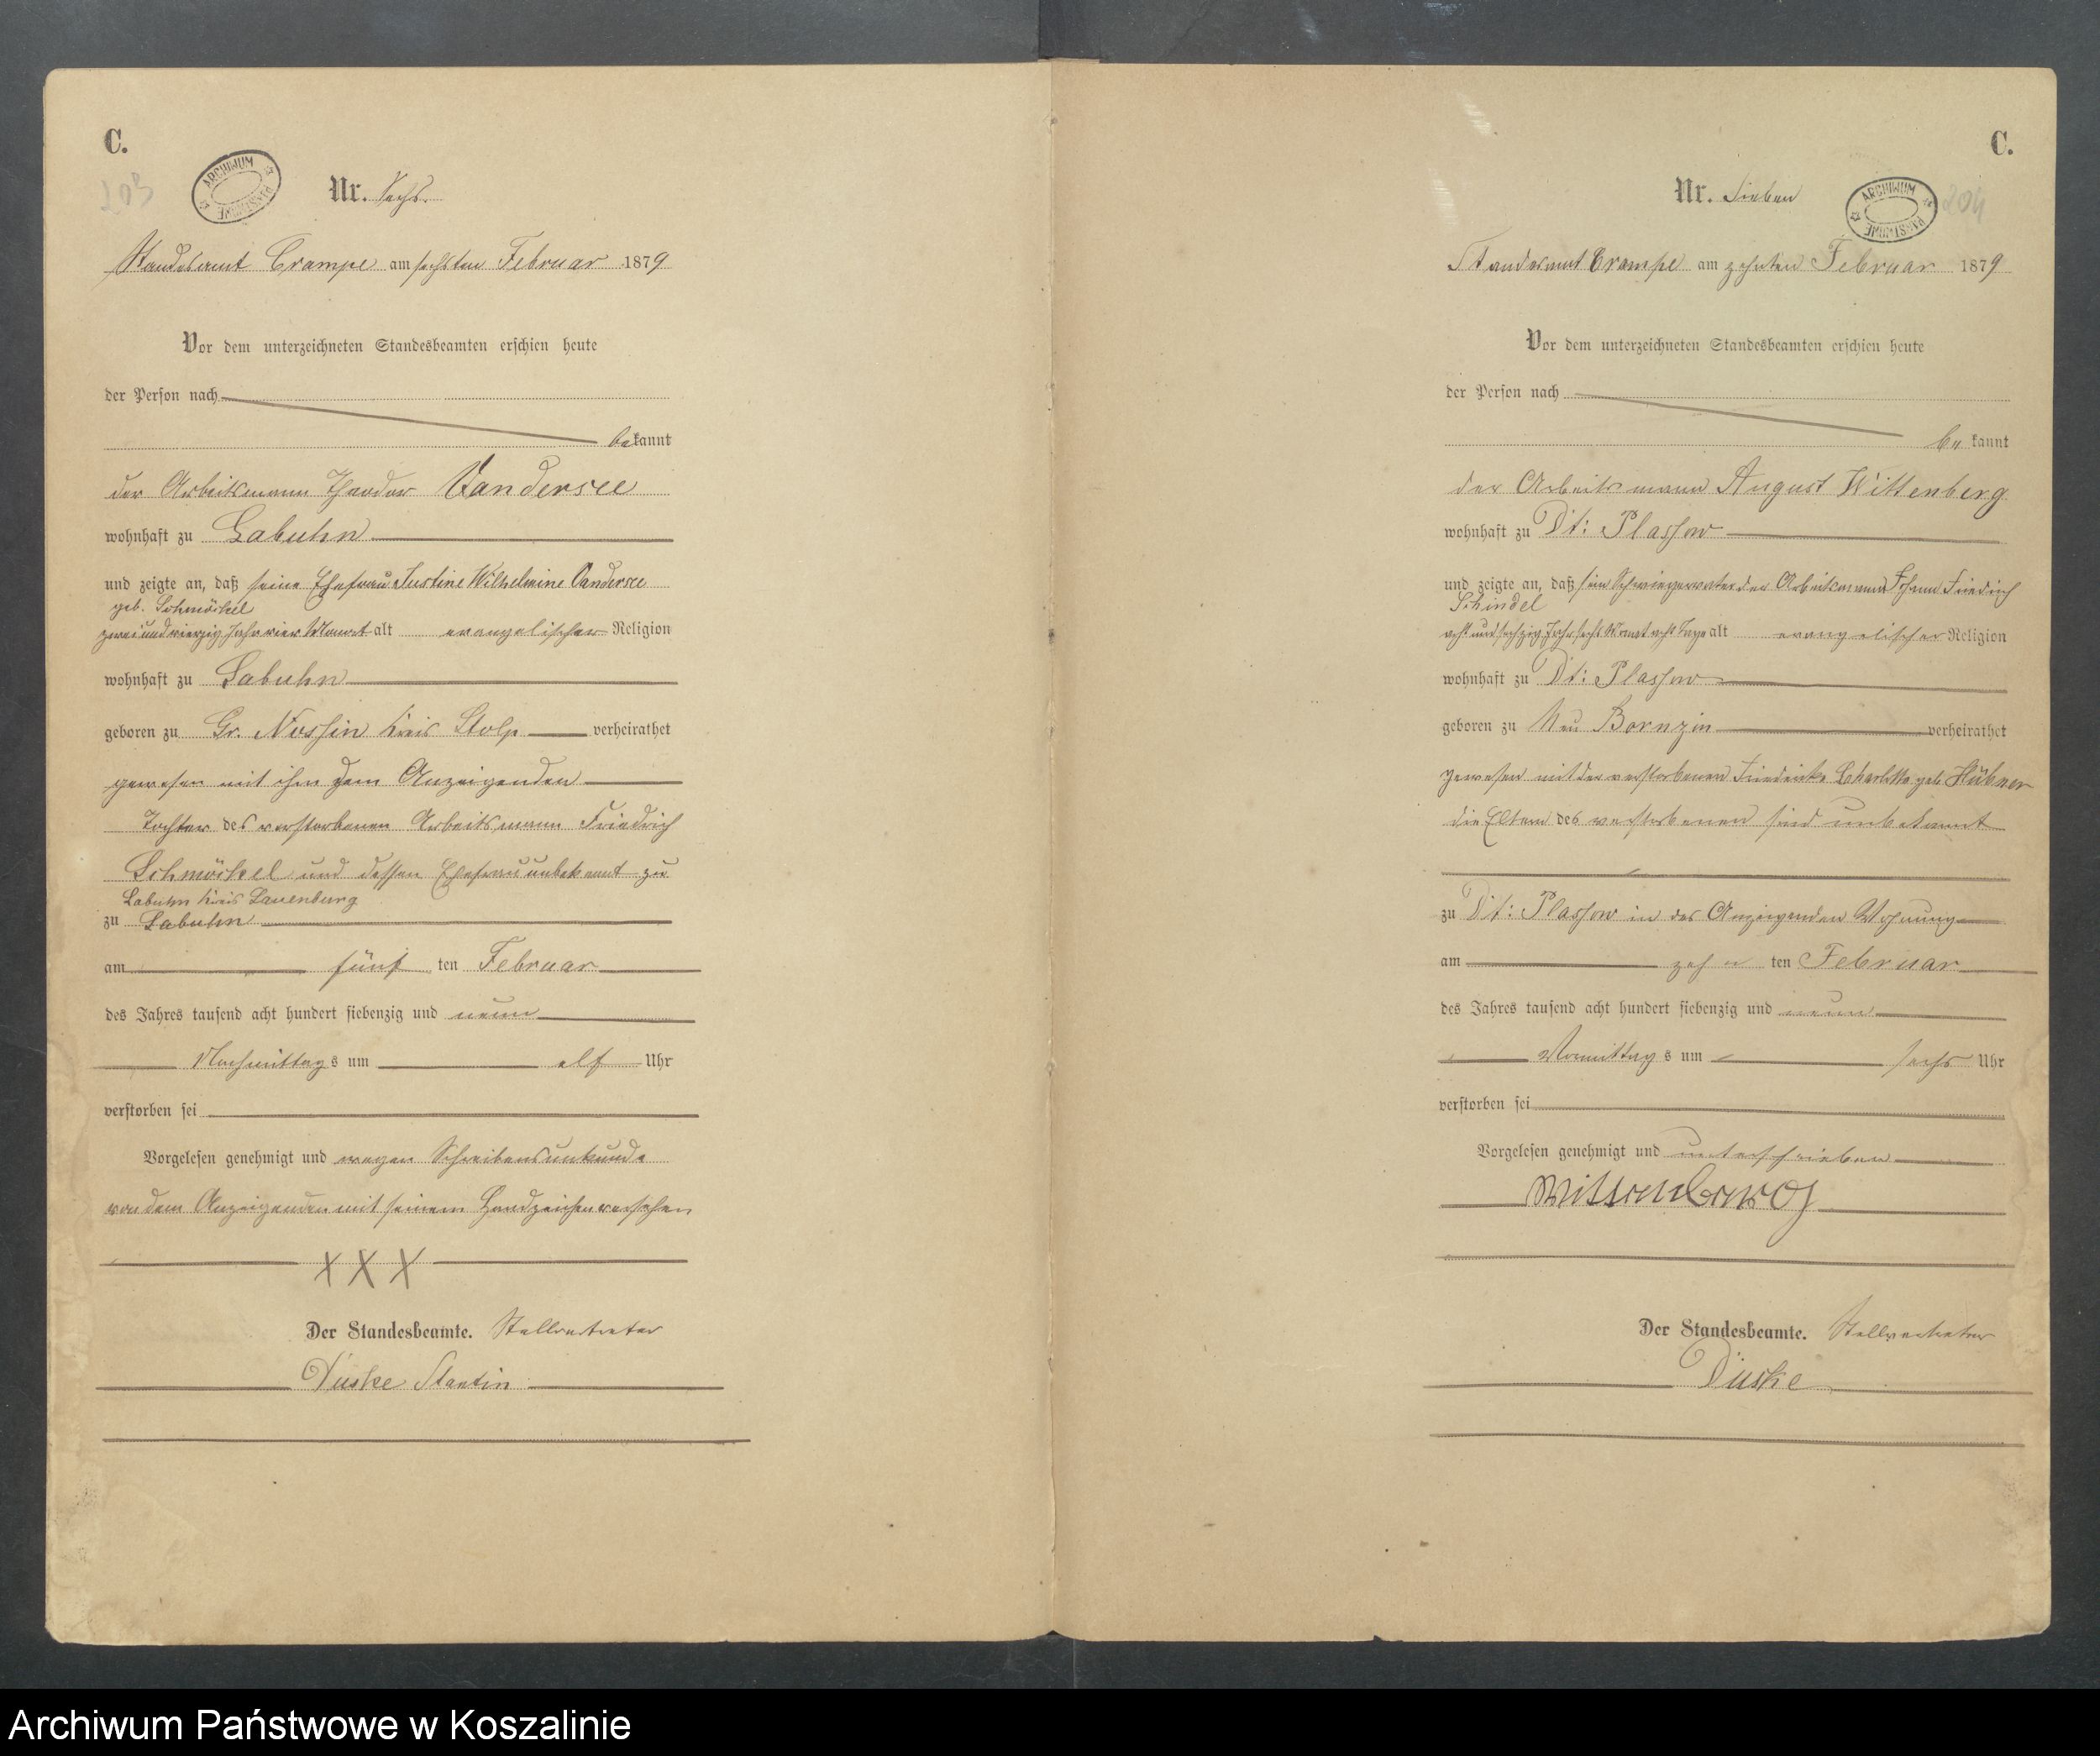 C.
203
ARCHIWUM PAŃSTWOWE
Nr. Sechs.
Standesamt Crampe am sechsten Februar 1879
Vor dem unterzeichneten Standesbeamten erschien heute
der Person nach
bekannt
der Arbeitsmann Theodor Vandersee
wohnhaft zu Labuhn
und zeigte an, daß seine Ehefrau Justine Wilhelmine Vandersee
geb. Schmöckel
zwei und vierzig Jahr vier Monat alt evangelischer Religion
wohnhaft zu Labuhn
geboren zu Gr. Nossin Kreis Stolp verheirathet
gewesen mit ihm dem Anzeigenden
Tochter des verstorbenen Arbeitsmann Friedrich
Schmöckel und dessen Ehefrau unbekannt zu
Labuhn Kreis Lauenburg
zu Labuhn
am fünf ten Februar
des Jahres tausend acht hundert siebenzig und neun
Nachmittags um elf Uhr
verstorben sei
Vorgelesen genehmigt und wegen Schreibensunkunde
von dem Anzeigenden mit seinem Handzeichen versehen
X X X
Der Standesbeamte. Stellvertreter
Düske Stantin
C.
204
ARCHIWUM PAŃSTWOWE
Nr. Sieben
Standesamt Crampe am zehnten Februar 1879
Vor dem unterzeichneten Standesbeamten erschien heute
der Person nach
be kannt
der Arbeitsmann August Wittenberg
wohnhaft zu Dt: Plassow
und zeigte an, daß sein Schwiegervater der Arbeitsmann Johann Friedrich
Schindel
acht und sechzig Jahr sechs Monat acht Tage alt evangelischer Religion
wohnhaft zu Dt: Plassow
geboren zu Neu Bornzin verheirathet
gewesen mit der verstorbenen Friederike Charlotte geb Hübner
die Eltern des verstorbenen sind unbekannt
zu Dt: Plassow in des Anzeigenden Wohnung
am zehn ten Februar
des Jahres tausend acht hundert siebenzig und neun
Vormittags um sechs Uhr
verstorben sei
Vorgelesen genehmigt und unterschrieben
Wittenberg
Der Standesbeamte. Stellvertreter
Düske
Archiwum Państwowe w Koszalinie